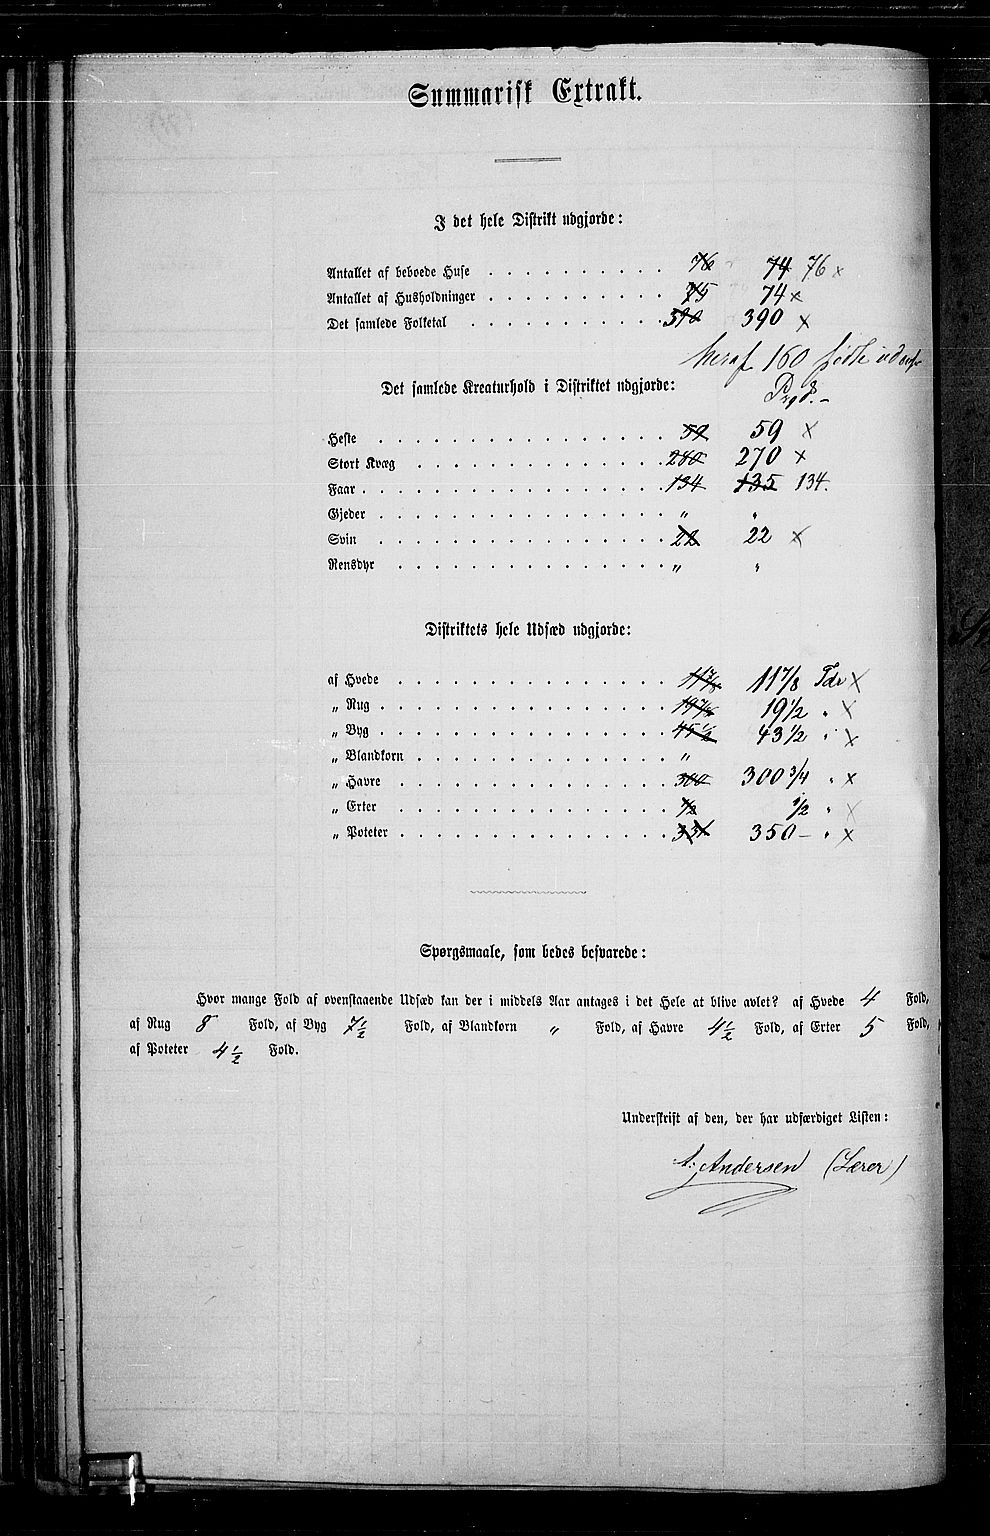 Summarisk Extrakt.
I det hele Distrikt udgjorde:
Antallet af beboede Huse 76 74 76 x
Antallet af Husholdninger 75 74 x
Det samlede Folketal 390 390 x
heraf 160 fødte udenf
Prgd.
Det samlede Kreaturhold i Distriktet udgjorde:
Heste 59 59 x
Stort Kvæg 280 270 x
Faar 134 135 134.
Gjeder „ „
Svin 22 22 x
Rensdyr „ „
Distriktets hele Udsæd udgjorde:
af Hvede 11 7/8 11 7/8 Tdr x
„ Rug 19 1/2 „ x
„ Byg 45 1/2 43 1/2 „ x
„ Blandkorn „
„ Havre 300 300 3/4 „ x
„ Erter 1/2 1/2 „ x
„ Poteter 350 – „ x
Spørgsmaale, som bedes besvarede:
Hvor mange Fold af ovenstaaende Udsæd kan der i middels Aar antages i det Hele at blive avlet? af Hvede 4 Fold,
af Rug 8 Fold, af Byg 7 1/2 Fold, af Blandkorn „ Fold, af Havre 4 1/2 Fold, af Erter 5 Fold,
af Poteter 4 1/2 Fold.
Underskrift af den, der har udfærdiget Listen:
A. Andersen (Lærer)